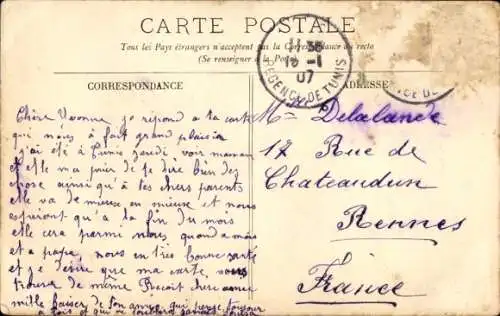 CARTE POSTALE
Tous les Pays étrangers n'acceptent pas la Correspondance au recto
(Se renseigner à la Poste)
CORRESPONDANCE
ADRESSE
REGENCE DE TUNIS
07
Chère Yvonne je répons à ta carte
qui nous à fait grand plaisir
j'ai été à Tunis jeudi voir maman
et elle ma prier de te dire bien des
chose ainsi qu'à tes chers parents
elle va de mieux en mieux et nous
espéront qu'a la fin du mois
elle cera parmi nous, quand a moi
et a papa, nous en très bonne santé
et je désire que ma carte, vous
trouve de même Reçoit chère
mille baisers de ton amie qui pense toujour
a toi et qui ne jamais
Mlle Delalande
17 Rue de
Chateaudun
Rennes
France